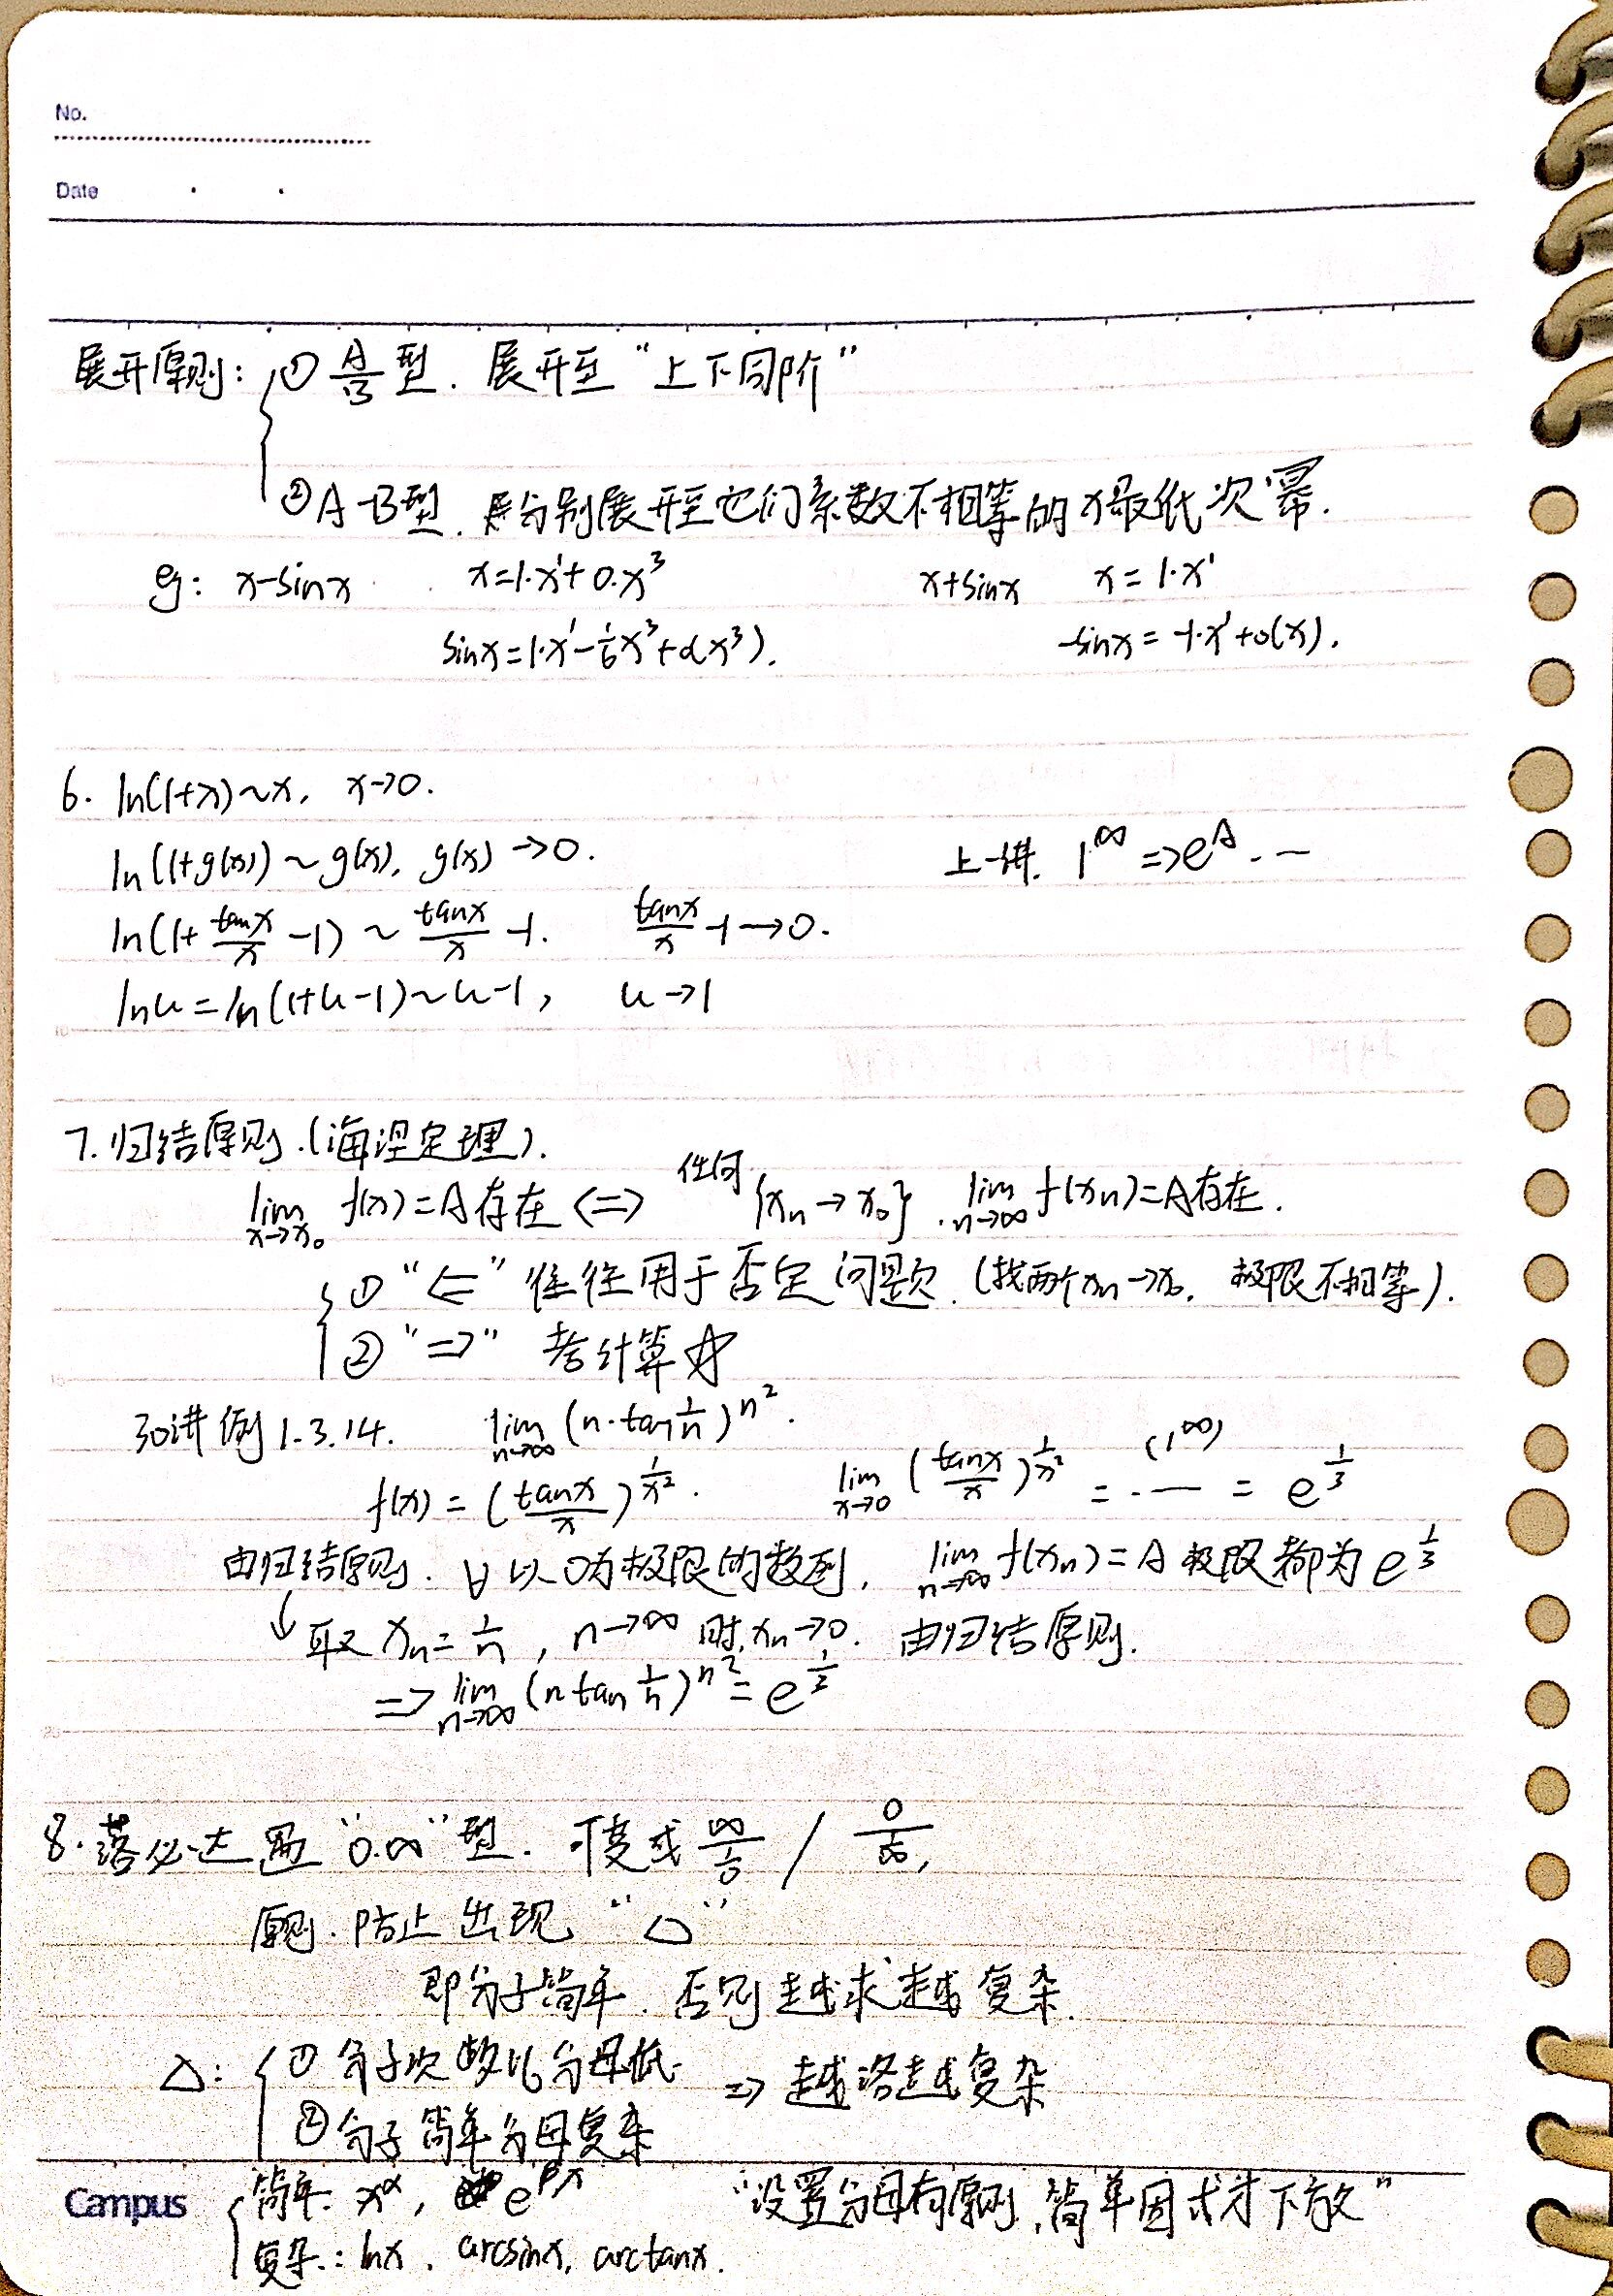 No.
Date
展开原则: ① A/B 型. 展开至 "上下同阶"
② A-B型. 分别展开至它们系数不相等的x最低次幂.
eg: x-sinx x=1·x¹+0·x³ x+sinx x=1·x¹
sinx=1·x¹-1/6x³+o(x³). -sinx=-1·x¹+o(x).
6. ln(1+x)~x, x→0.
ln(1+g(x))~g(x), g(x)→0. 上一讲. 1^∞ ⇒ e^A ·—
ln(1+tanx/x -1) ~ tanx/x -1. tanx/x -1→0.
lnu=ln(1+u-1)~u-1, u→1
7. 归结原则.(海涅定理).
lim x→x₀ f(x)=A存在 ⇔ 任何{xₙ→x₀}. lim n→∞ f(xₙ)=A存在.
① "⇐" 往往用于否定问题.(找两个xₙ→x₀, 极限不相等).
② "⇒" 考计算
30讲例1.3.14. lim n→∞ (n·tan 1/n)^n².
f(x)=(tanx/x)^(1/x²). lim x→0 (tanx/x)^(1/x²) =·— (1^∞) = e^(1/3)
由归结原则. ∀以0为极限的数列, lim n→∞ f(xₙ)=A 极限都为 e^(1/3)
↓取 xₙ=1/n, n→∞ 时, xₙ→0. 由归结原则.
⇒ lim n→∞ (n tan 1/n)^n² = e^(1/3)
8. 落必达 "0.∞" 型. 可变成 ∞/(1/0) / 0/(1/∞),
原则. 防止出现 "△"
即分子简单. 否则越求越复杂.
△: ① 分子次数比分母低. ⇒ 越洛越复杂
② 分子简单分母复杂
Campus 简单: x^α, e^βx "设置分母有原则, 简单因式才下放"
复杂: lnx, arcsinx, arctanx.